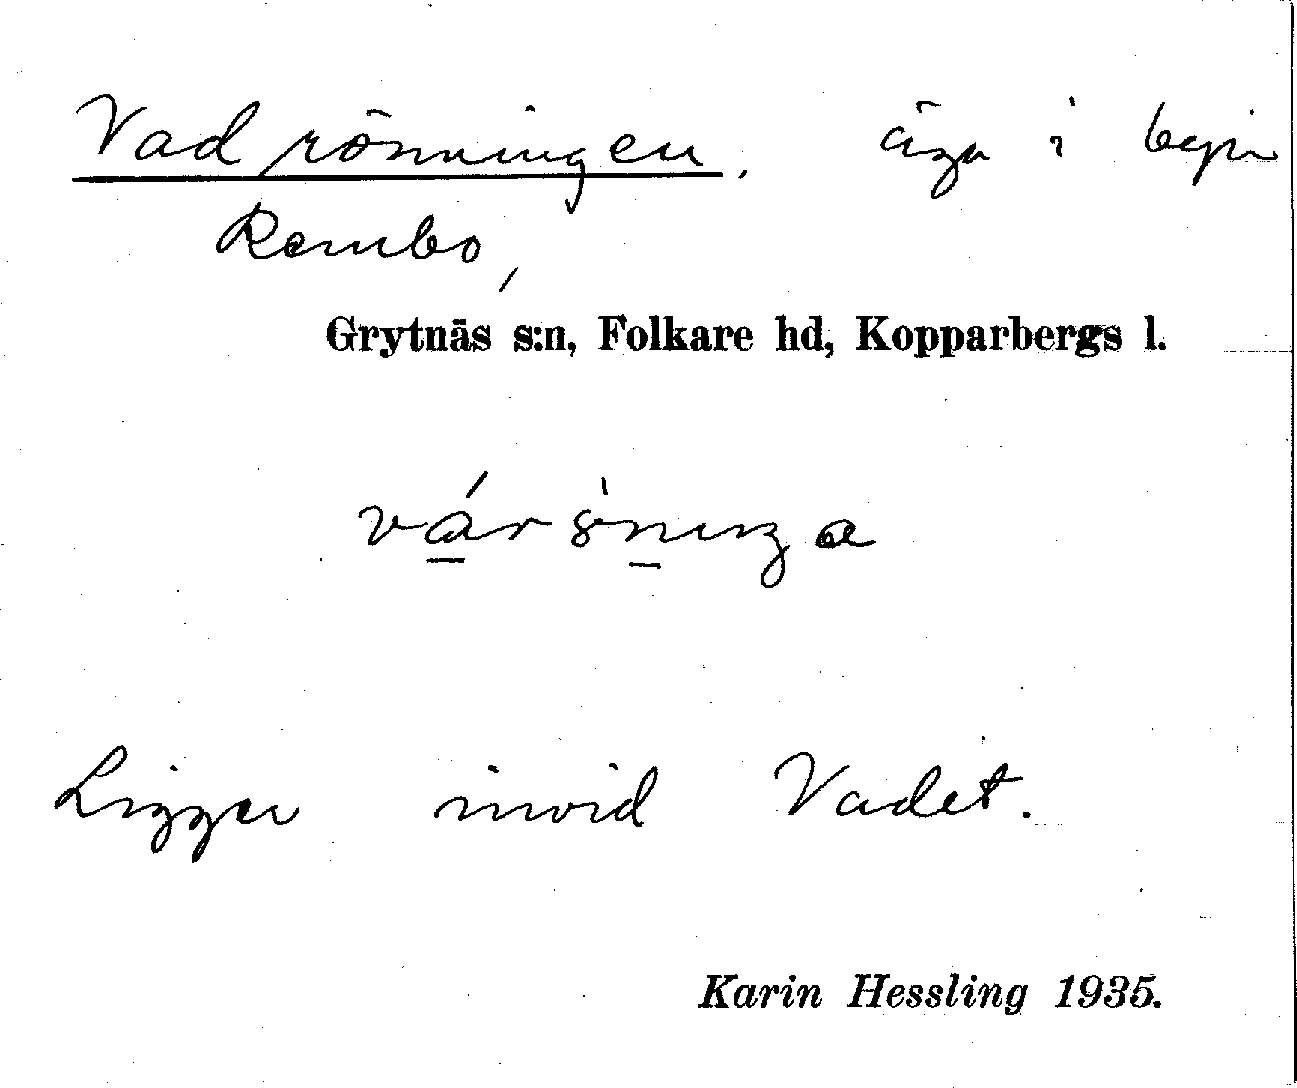 Vadrönningen, äga i byn
Rembo,
Grytnäs s:n, Folkare hd, Kopparbergs l.
Ligger invid Vadet.
Karin Hessling 1935.